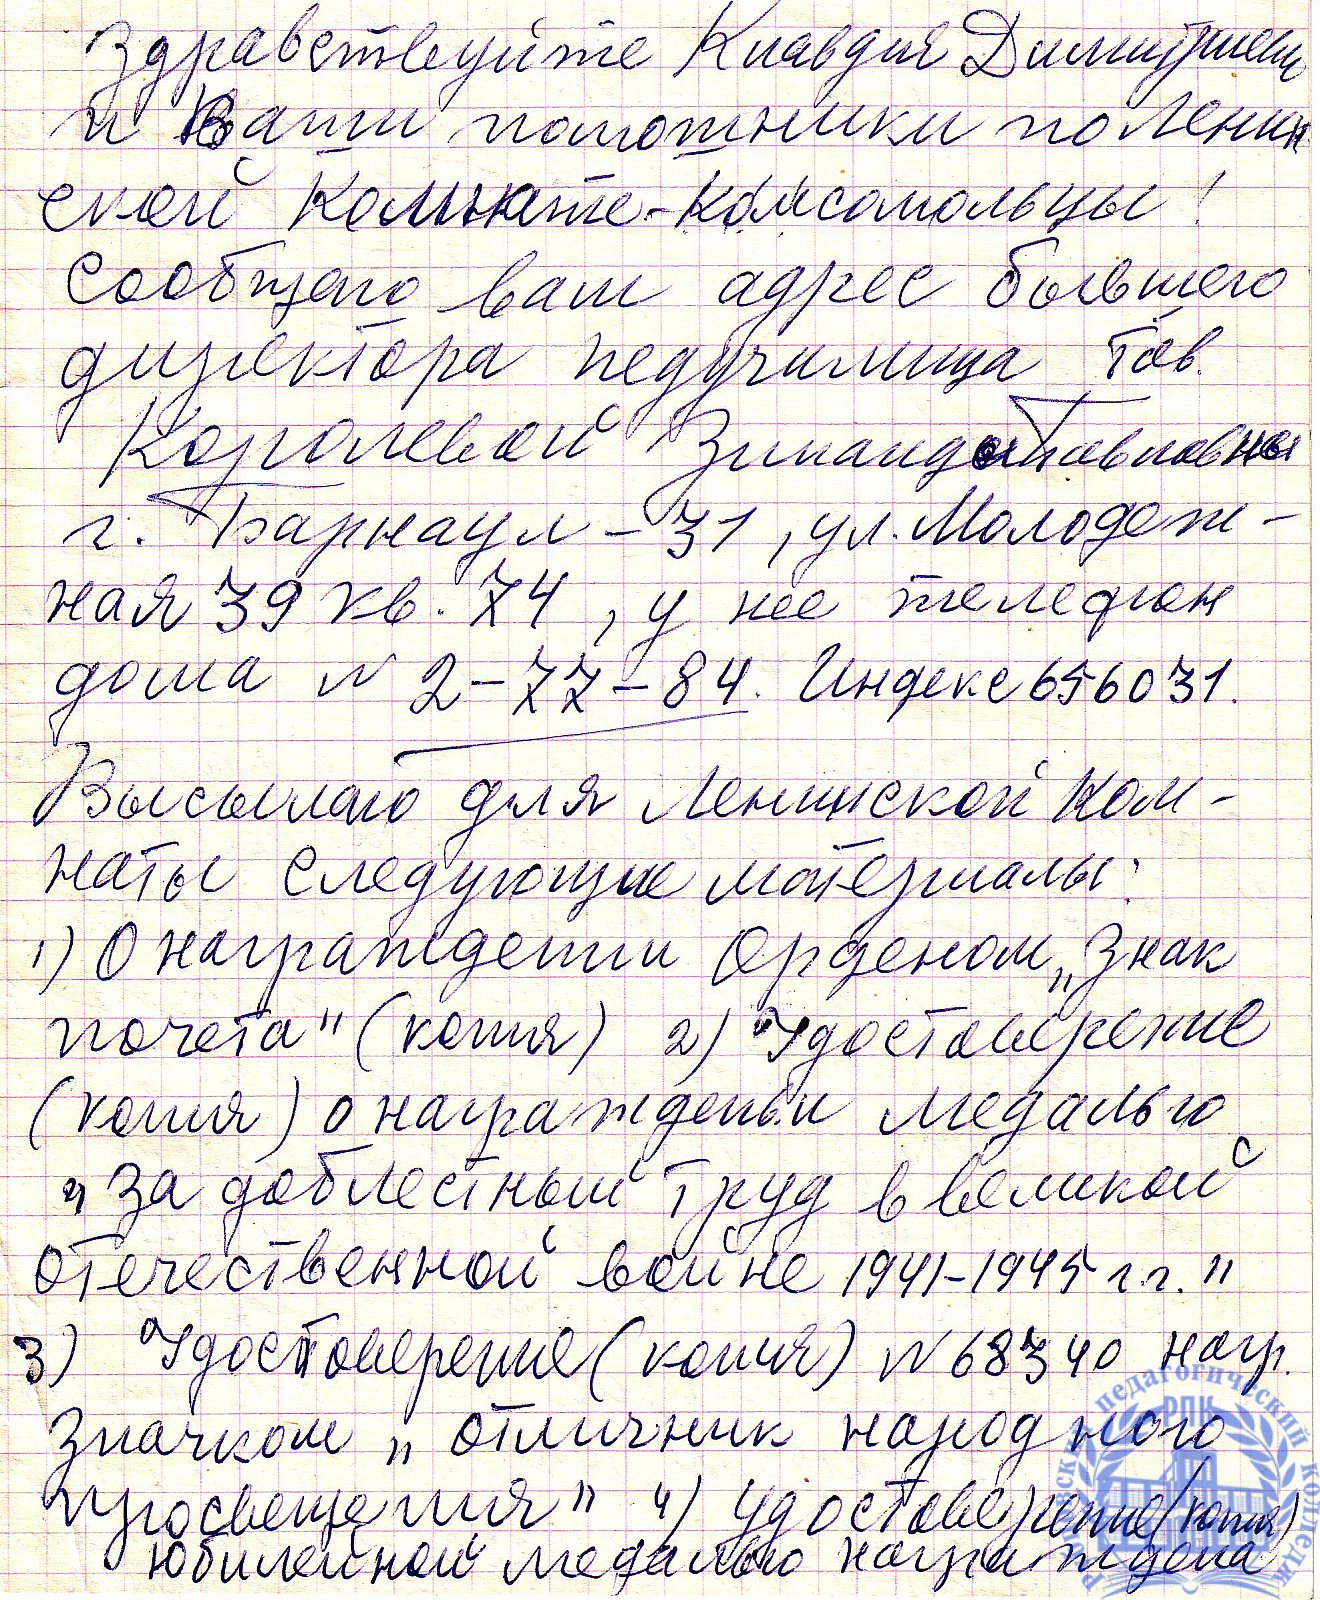 Здравствуйте Клавдия Димитриевн
и Ваши помошники по Ленин
ской Комнате-Комсомольцы!
Сообщаю вам адрес бывшего
директора педучилища тов.
Королевой Зинаиды Павловны
г. Барнаул-31, ул. Молодеж-
ная 39 кв. 74, у нее телефон
дома № 2-77-84. Индекс 656031.
Высылаю для Ленинской Ком-
наты следующие материалы:
1) О награждении Орденом „Знак
почета" (копия) 2) Удостоверение
(копия) о награждении медалью
„За доблестный труд в великой
отечественной войне 1941-1945 г.г."
3) Удостоверение (копия) № 68340 нагр.
Значком „Отличник народного
просвещения" 4) Удостоверение (копия)
юбилейной медалью награждена
педагогический колледж
РПК